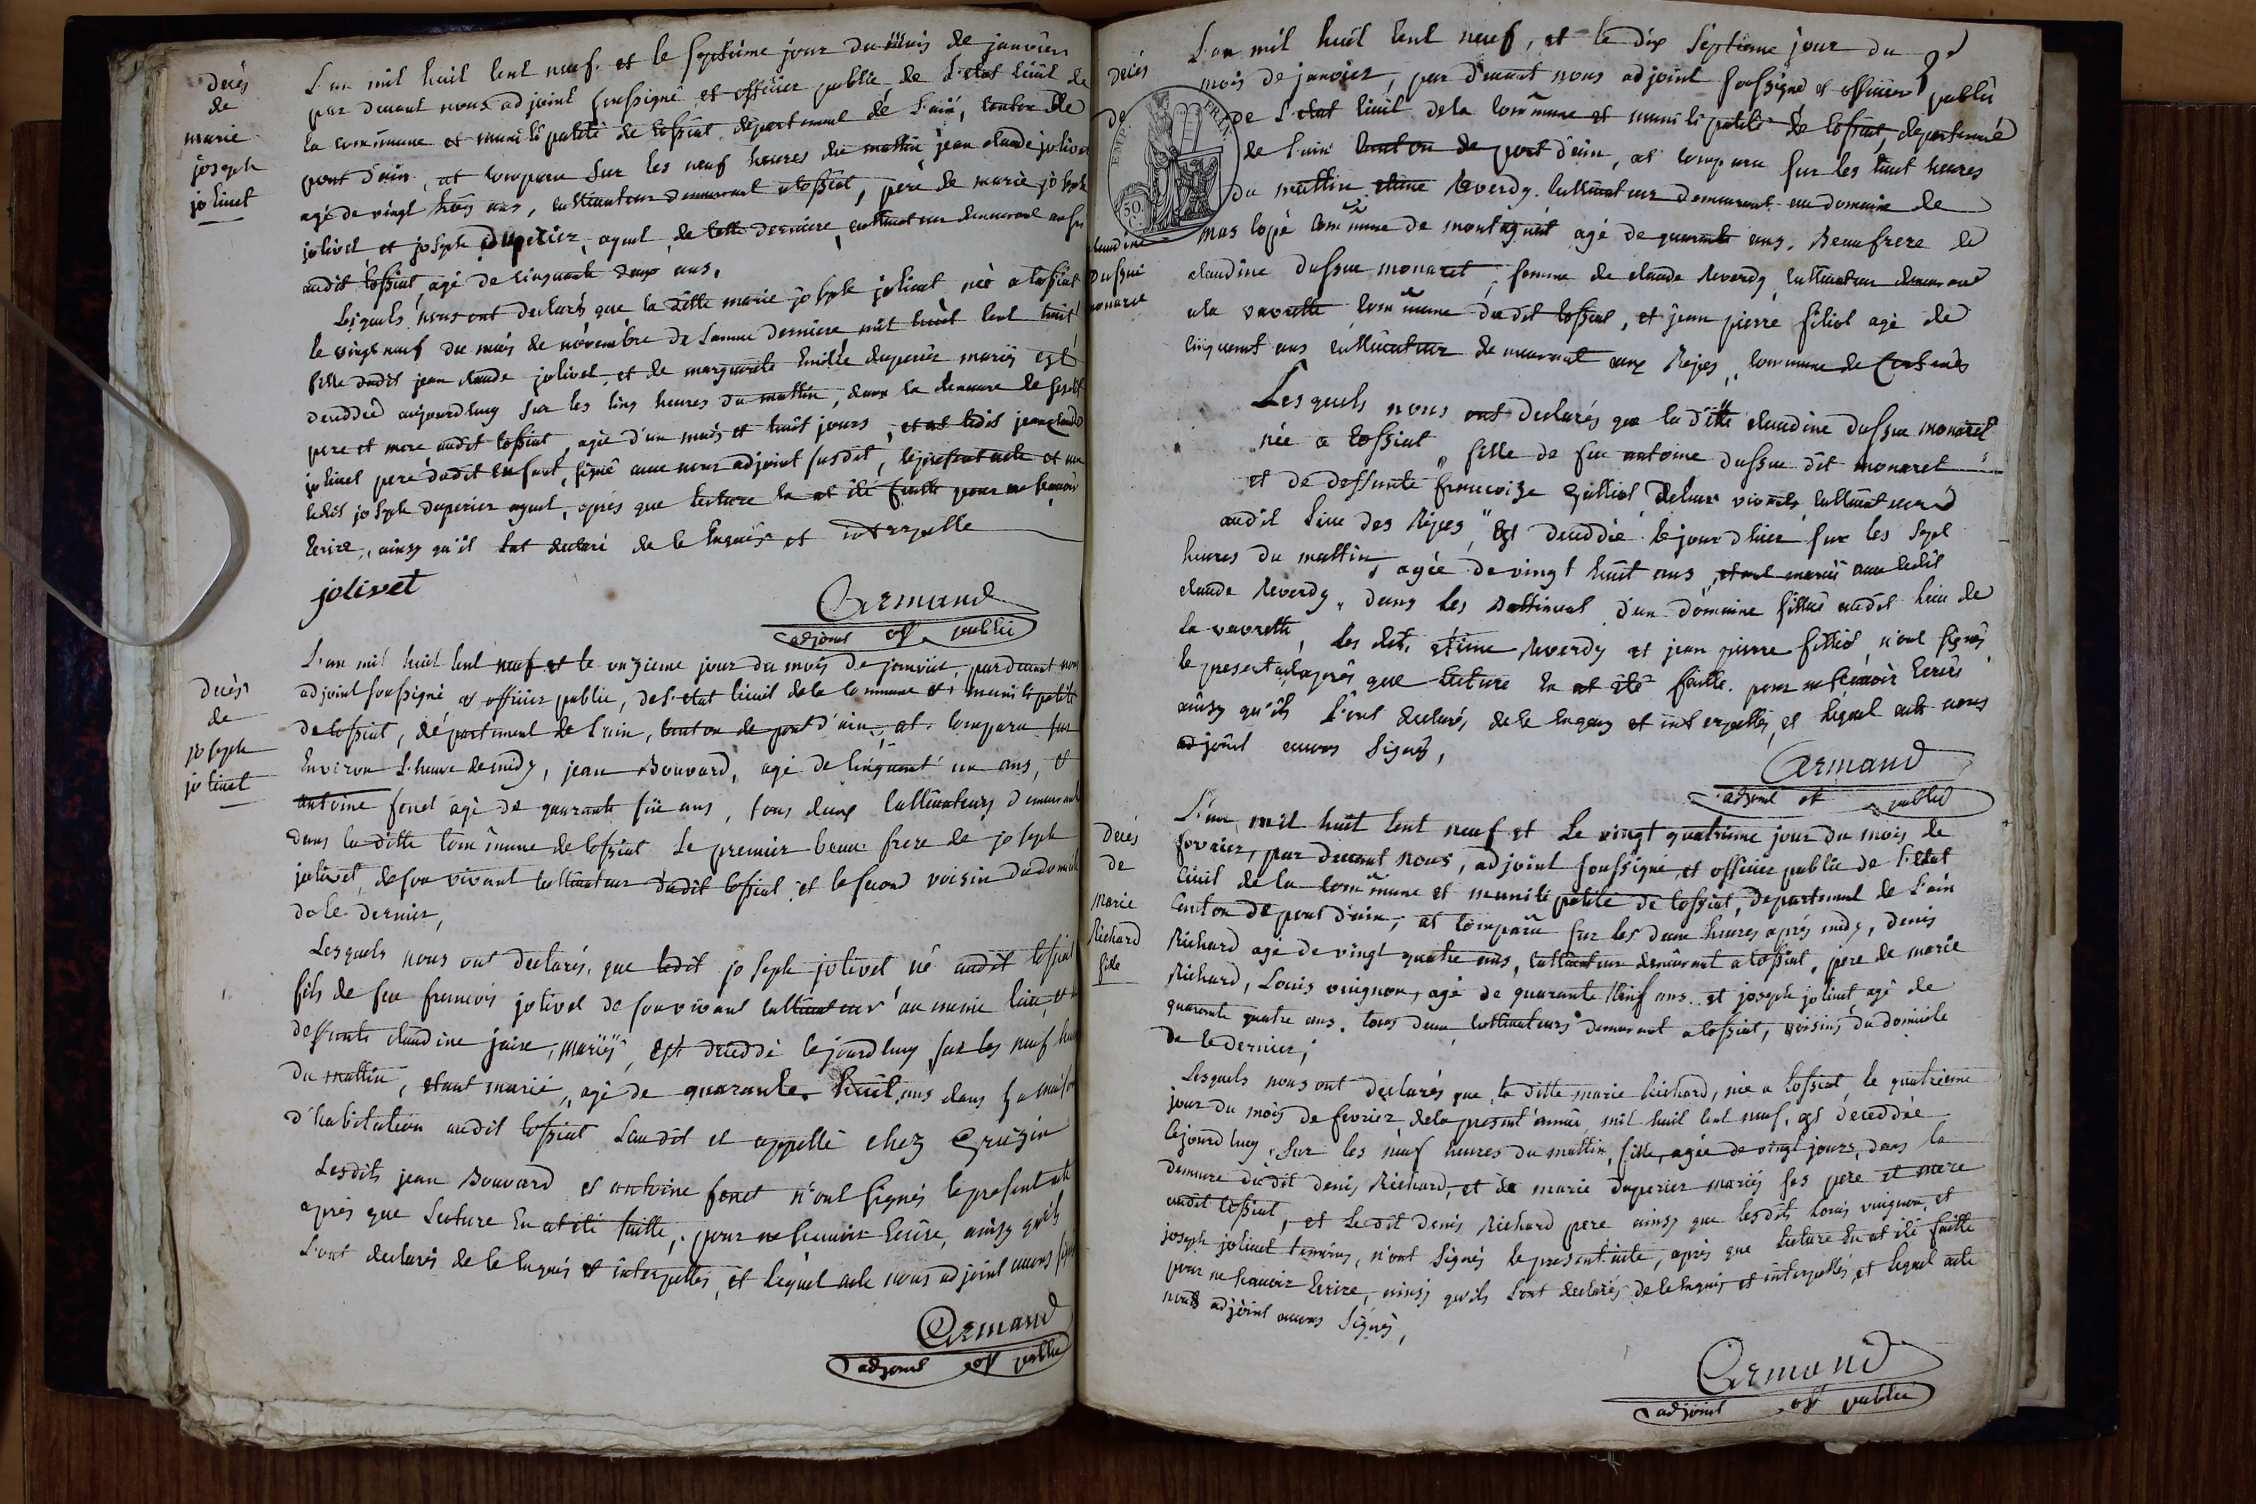 Decès
de
marie
joseph
jolivet
L'an mil huit cent neuf et le septième jour du mois de janvier
par devant nous adjoint soussigné et officier public de l'etat civil de
la commune et municipalité de tossiat département de l'ain, canton de
pont d'ain, at comparu sur les neuf heures du mattin jean claude jolivet
agé de vingt trois ans, cultivateur demeurant a tossiat, père de marie joseph
jolivet et joseph Duperier, ayeul de cette derniere, cultivateur demeurant au sus
audit tossiat, agé de cinquante deux ans.
Lesquels nous ont declarés que la ditte marie joseph jolivet née a tossiat
le vingt neuf du mois de novembre de l'année derniere mil huit cent huit
fille dudit jean claude jolivet, et de marguerite Emilie duperier mariés est
deceddée aujourdhuy sur les cinq heures du mattin, dans la demeure de sesdit
pere et mere audit tossiat, agée d'un mois et huit jours, et at ledit jean claude
jolivet pere dudit enfant, signé avec nous adjoint susdit, le present acte et non
ledit joseph duperier ayeul, après que lecture en at été faitte pour ne scavoir
Ecrire, ainsy qu'il l'at declaré de ce Enquis et interpellé
jolivet
Armand
adjoint off public
Decès
de
joseph
jolivet
L'an mil huit cent neuf et le onzieme jour du mois de janvier, par devant nous
adjoint soussigné et officier public, de l'etat civil de la commune et municipalité
de tossiat, département de l'ain, canton de pont d'ain, at comparu sur
Environ l'heure de midy, jean Bouvard, agé de cinquant un ans, et
antoine fonet agé de quarante six ans, tous deux cultivateurs demeurant
dans la ditte commune de tossiat le premier beau frere de joseph
jolivet, de son vivant cultivateur dudit tossiat et le second voisin du domicile
de ce dernier,
Lesquels nous ont declarés, que ledit joseph jolivet né audit tossiat
fils de feu francois jolivet de son vivant cultivateur au meme lieu, et de
deffunte claudine jaire, mariés, est deceddé cejourdhuy sur les neuf heures
du mattin, etant marié, agé de quarante huit ans dans sa maison
d'habitation audit tossiat Laudit et appellé chez Gruzin
Lesdits jean Bouvard et antoine fonet n'ont signés le present acte
après que Lecture En at été faitte, pour ne scavoir Ecrire, ainsy qu'ils
l'ont declarés de ce Enquis et interpellés, et lequel acte nous adjoint avons signé
Armand
adjoint off public
Decès
de
claudine
Dussue
monaret
EMP FRAN
50
L'an mil huit cent neuf, et le dix septieme jour du
mois de janvier, par devant nous adjoint soussigné et officier public
de l'etat civil de la commune et municipalité de tossiat, departement
de l'ain canton de pont d'ain, at comparu sur les huit heures
du mattin etiene Reverdy cultivateur demeurant au domaine de
mas lopé commune de montagnat agé de quarante ans. Beaufrere de
claudine dussue monaret, femme de claude Reverdy, cultivateur demeurant
a la vavrette commune dudit tossiat, et jean pierre filliot agé de
cinquant ans cultivateur demeurant aux Rippes, commune de Certines
Lesquels nous ont declarés que la ditte claudine dussue monaret
née a tossiat fille de feu antoine dussue dit monaret
et de deffunte francoise filliot de leur vivant cultivateurs
audit lieu des Rippes, est deceddée le jour d'hier sur les sept
heures du mattin, agée de vingt huit ans, etant mariée avec ledit
claude Reverdy, dans les Battiment d'un domaine sittué audit lieu de
la vavrette, Les dits etiene Reverdy et jean pierre filliot n'ont signés
le present acte après que Lecture en at été faitte pour ne scavoir Ecrire
ainsy qu'ils l'ont declarés, de ce Enquis et interpellés, et lequel acte nous
adjoint avons signés,
Armand
adjoint off public
Decès
de
Marie
Richard
fille
L'an mil huit cent neuf et Le vingt quatrieme jour du mois de
fevrier, par devant nous, adjoint soussigné et officier public de l'etat
civil de la commune et municipalité de tossiat, departement de l'ain
canton de pont d'ain, at comparu sur les deux heures après midy, denis
Richard agé de vingt quatre ans, cultivateur demeurant a tossiat, père de marie
Richard, Louis vuignon, agé de quarante neuf ans et joseph jolivet agé de
quarante quatre ans, tous deux cultivateurs demeurant a tossiat, voisins du domicile
de ce dernier;
Lesquels nous ont declarés que la ditte marie Richard, née a tossiat le quatrieme
jour du mois de fevrier de la present année mil huit cent neuf, est deceddée
cejourdhuy sur les neuf heures du mattin, fille, agée de vingt jours, dans la
demeure dudit denis Richard, et de marie duperier mariés ses pere et mere
audit tossiat, et Ledit denis Richard pere ainsy que lesdits Louis vuignon, et
joseph jolivet temoins, n'ont signés le present acte, après que Lecture En at été faitte
pour ne scavoir Ecrire, ainsy qu'ils l'ont declarés de ce Enquis et interpellés, et lequel acte
nous adjoint avons signés,
Armand
adjoint off public